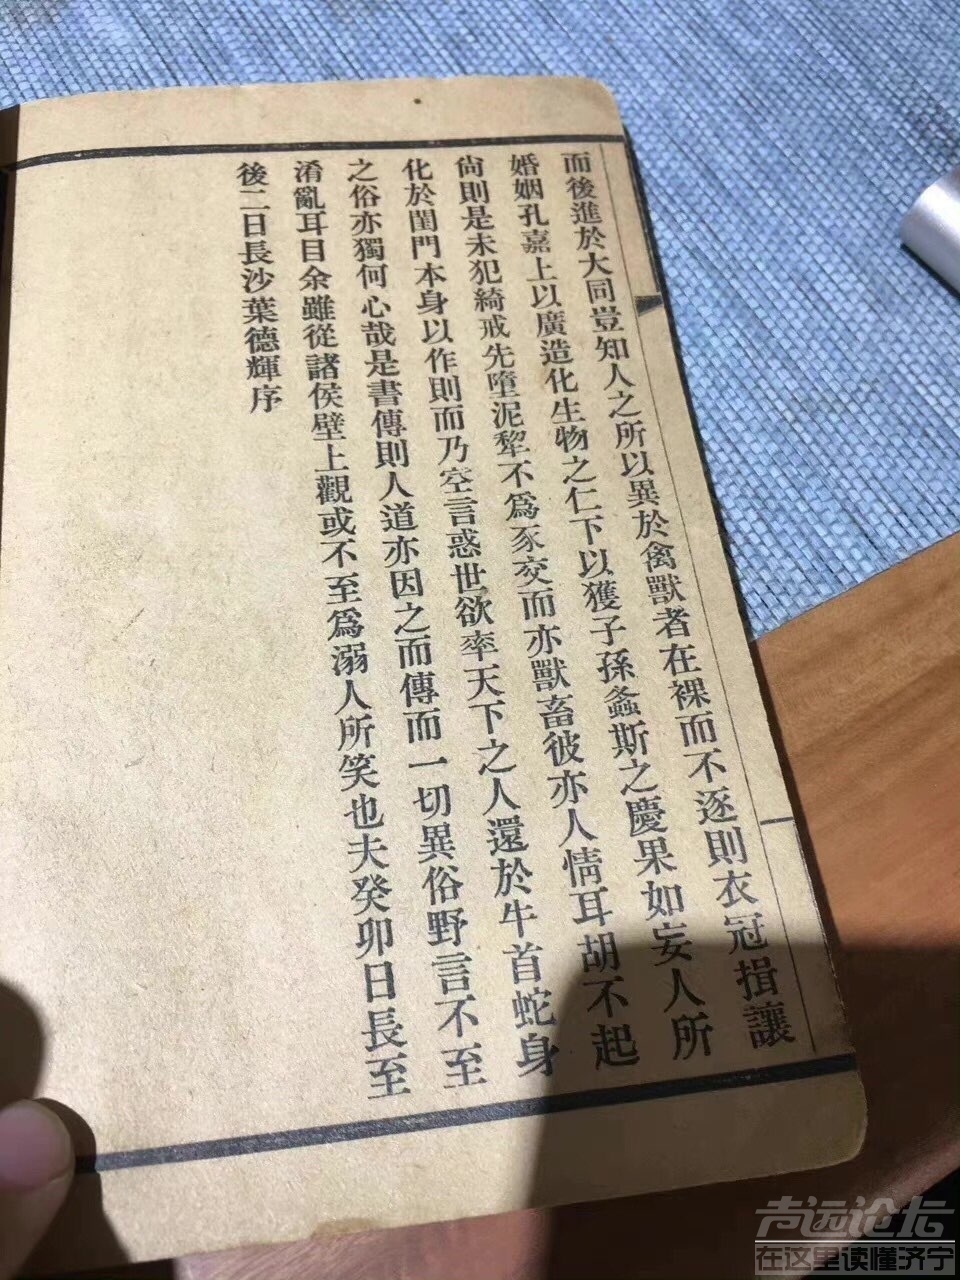 而後進於大同豈知人之所以異於禽獸者在裸而不逐則衣冠揖讓
婚姻孔嘉上以廣造化生物之仁下以獲子孫螽斯之慶果如妄人所
尙則是未犯綺戒先墮泥犂不爲豕交而亦獸畜彼亦人情耳胡不起
化於閨門本身以作則而乃空言惑世欲率天下之人還於牛首蛇身
之俗亦獨何心哉是書傳則人道亦因之而傳而一切異俗野言不至
淆亂耳目余雖從諸侯壁上觀或不至爲溺人所笑也夫癸卯日長至
後二日長沙葉德輝序
声远论坛
在这里读懂济宁